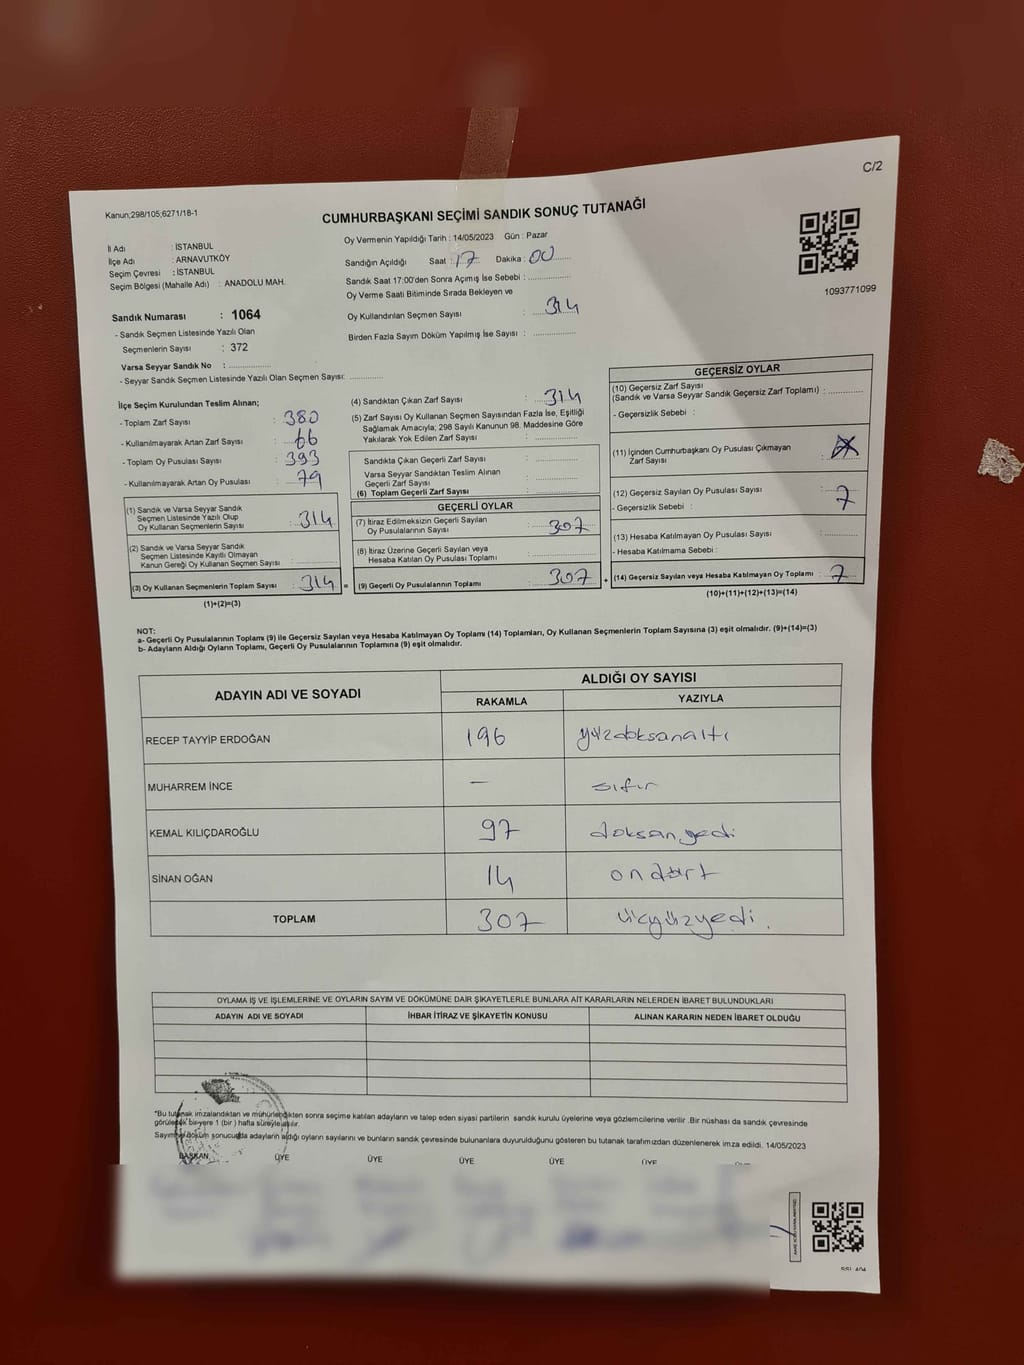 C/2
Kanun;298/105;6271/18-1
CUMHURBAŞKANI SEÇİMİ SANDIK SONUÇ TUTANAĞI
İl Adı : İSTANBUL
İlçe Adı : ARNAVUTKÖY
Seçim Çevresi : İSTANBUL
Seçim Bölgesi (Mahalle Adı) : ANADOLU MAH.
Sandık Numarası : 1064
- Sandık Seçmen Listesinde Yazılı Olan
Seçmenlerin Sayısı : 372
Varsa Seyyar Sandık No : ..................
- Seyyar Sandık Seçmen Listesinde Yazılı Olan Seçmen Sayısı: ..............
Oy Vermenin Yapıldığı Tarih : 14/05/2023 Gün : Pazar
Sandığın Açıldığı Saat : 17 Dakika : 00
Sandık Saat 17:00'den Sonra Açımış İse Sebebi : ..............
Oy Verme Saati Bitiminde Sırada Bekleyen ve
Oy Kullandırılan Seçmen Sayısı : 314
Birden Fazla Sayım Döküm Yapılmış İse Sayısı : ..............
1093771099
İlçe Seçim Kurulundan Teslim Alınan;
- Toplam Zarf Sayısı : 380
- Kullanılmayarak Artan Zarf Sayısı : 66
- Toplam Oy Pusulası Sayısı : 393
- Kullanılmayarak Artan Oy Pusulası : 79
(1) Sandık ve Varsa Seyyar Sandık
Seçmen Listesinde Yazılı Olup
Oy Kullanan Seçmenlerin Sayısı : 314
(2) Sandık ve Varsa Seyyar Sandık
Seçmen Listesinde Kayıtlı Olmayan
Kanun Gereği Oy Kullanan Seçmen Sayısı : ..............
(3) Oy Kullanan Seçmenlerin Toplam Sayısı : 314 =
(1)+(2)=(3)
(4) Sandıktan Çıkan Zarf Sayısı : 314
(5) Zarf Sayısı Oy Kullanan Seçmen Sayısından Fazla İse, Eşitliği
Sağlamak Amacıyla; 298 Sayılı Kanunun 98. Maddesine Göre
Yakılarak Yok Edilen Zarf Sayısı : ..............
Sandıkta Çıkan Geçerli Zarf Sayısı : ..............
Varsa Seyyar Sandıktan Teslim Alınan
Geçerli Zarf Sayısı : ..............
(6) Toplam Geçerli Zarf Sayısı : ..............
GEÇERLİ OYLAR
(7) İtiraz Edilmeksizin Geçerli Sayılan
Oy Pusulalarının Sayısı : 307
(8) İtiraz Üzerine Geçerli Sayılan veya
Hesaba Katılan Oy Pusulası Toplamı : ..............
(9) Geçerli Oy Pusulalarının Toplamı : 307 +
GEÇERSİZ OYLAR
(10) Geçersiz Zarf Sayısı
(Sandık ve Varsa Seyyar Sandık Geçersiz Zarf Toplamı) : ..............
- Geçersizlik Sebebi :
(11) İçinden Cumhurbaşkanı Oy Pusulası Çıkmayan
Zarf Sayısı :
(12) Geçersiz Sayılan Oy Pusulası Sayısı : 7
- Geçersizlik Sebebi :
(13) Hesaba Katılmayan Oy Pusulası Sayısı : ..............
- Hesaba Katılmama Sebebi :
(14) Geçersiz Sayılan veya Hesaba Katılmayan Oy Toplamı : 7
(10)+(11)+(12)+(13)=(14)
NOT:
a- Geçerli Oy Pusulalarının Toplamı (9) ile Geçersiz Sayılan veya Hesaba Katılmayan Oy Toplamı (14) Toplamları, Oy Kullanan Seçmenlerin Toplam Sayısına (3) eşit olmalıdır. (9)+(14)=(3)
b- Adayların Aldığı Oyların Toplamı, Geçerli Oy Pusulalarının Toplamına (9) eşit olmalıdır.
ADAYIN ADI VE SOYADI
ALDIĞI OY SAYISI
RAKAMLA YAZIYLA
RECEP TAYYİP ERDOĞAN 196 yüzdoksanaltı
MUHARREM İNCE — sıfır
KEMAL KILIÇDAROĞLU 97 doksan yedi
SİNAN OĞAN 14 on dört
TOPLAM 307 üçyüzyedi
OYLAMA İŞ VE İŞLEMLERİNE VE OYLARIN SAYIM VE DÖKÜMÜNE DAİR ŞİKAYETLERLE BUNLARA AİT KARARLARIN NELERDEN İBARET BULUNDUKLARI
ADAYIN ADI VE SOYADI İHBAR İTİRAZ VE ŞİKAYETİN KONUSU ALINAN KARARIN NEDEN İBARET OLDUĞU
"Bu tutanak imzalandıktan ve mühürlendikten sonra seçime katılan adayların ve talep eden siyasi partilerin sandık kurulu üyelerine veya gözlemcilerine verilir .Bir nüshası da sandık çevresinde
görülecek bir yere 1 (bir ) hafta süreyle asılır.
Sayım ve döküm sonucunda adayların aldığı oyların sayılarını ve bunların sandık çevresinde bulunanlara duyurulduğunu gösteren bu tutanak tarafımızdan düzenlenerek imza edildi. 14/05/2023
BAŞKAN ÜYE ÜYE ÜYE ÜYE ÜYE